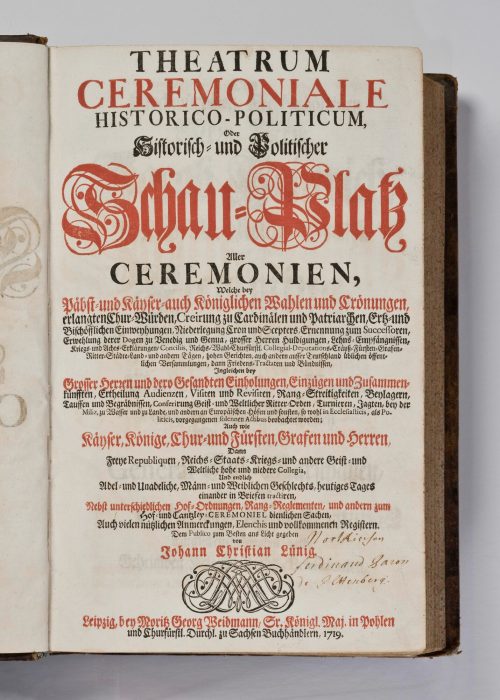 THEATRUM
CEREMONIALE
HISTORICO-POLITICUM,
Oder
Historisch- und Politischer
Schau-Platz
Aller
CEREMONIEN,
Welche bey
Päbst- und Käyser- auch Königlichen Wahlen und Crönungen,
erlangten Chur-Würden, Creirung zu Cardinälen und Patriarchen, Ertz- und
Bischöfflichen Einweyhungen, Niederlegung Cron und Scepters, Ernennung zum Successoren,
Erwehlung derer Dogen zu Venedig und Genua, grosser Herren Huldigungen, Lehns-Empfängnissen,
Kriegs und Achts-Erklärungen, Conciliis, Reichs-Wahl-Churfürstl. Collegial-Deputations-Cräyß-Fürsten-Grafen-
Ritter-Städte-Land- und andern Tägen, hohen Gerichten, auch andern ausser Teutschland üblichen öffent-
lichen Versammlungen, dann Friedens-Tractaten und Bündnissen,
Ingleichen bey
Grosser Herren und dero Gesandten Einholungen, Einzügen und Zusammen-
künfften, Ertheilung Audienzen, Visiten und Revisiten, Rang-Streitigkeiten, Beylagern,
Tauffen und Begräbnissen, Conferirung Geist- und Weltlicher Ritter-Orden, Turnieren, Jagten, bey der
Miliz, zu Wasser und zu Lande, und andern an Europäischen Höfen und sonsten, so wohl in Ecclesiasticis, als Po-
liticis, vorgegangenen solennen Actibus beobachtet worden;
Auch wie
Käyser, Könige, Chur- und Fürsten, Grafen und Herren,
Dann
Freye Republiquen, Reichs-Staats-Kriegs- und andere Geist- und
Weltliche hohe und niedere Collegia,
Und endlich
Adel- und Unadeliche, Männ- und Weiblichen Geschlechts, heutiges Tages
einander in Briefen tractiren,
Nebst unterschiedlichen Hof-Ordnungen, Rang-Reglementen, und andern zum
Hof- und Cantzley-CEREMONIEL dienlichen Sachen,
Auch vielen nützlichen Anmerckungen, Elenchis und vollkommenen Registern.
Dem Publico zum Besten ans Licht gegeben
von
Johann Christian Lünig.
ferdinand Baron
de Plettenberg.
Leipzig, bey Moritz Georg Weidmann, Sr. Königl. Maj. in Pohlen
und Churfürstl. Durchl. zu Sachsen Buchhändlern, 1719.